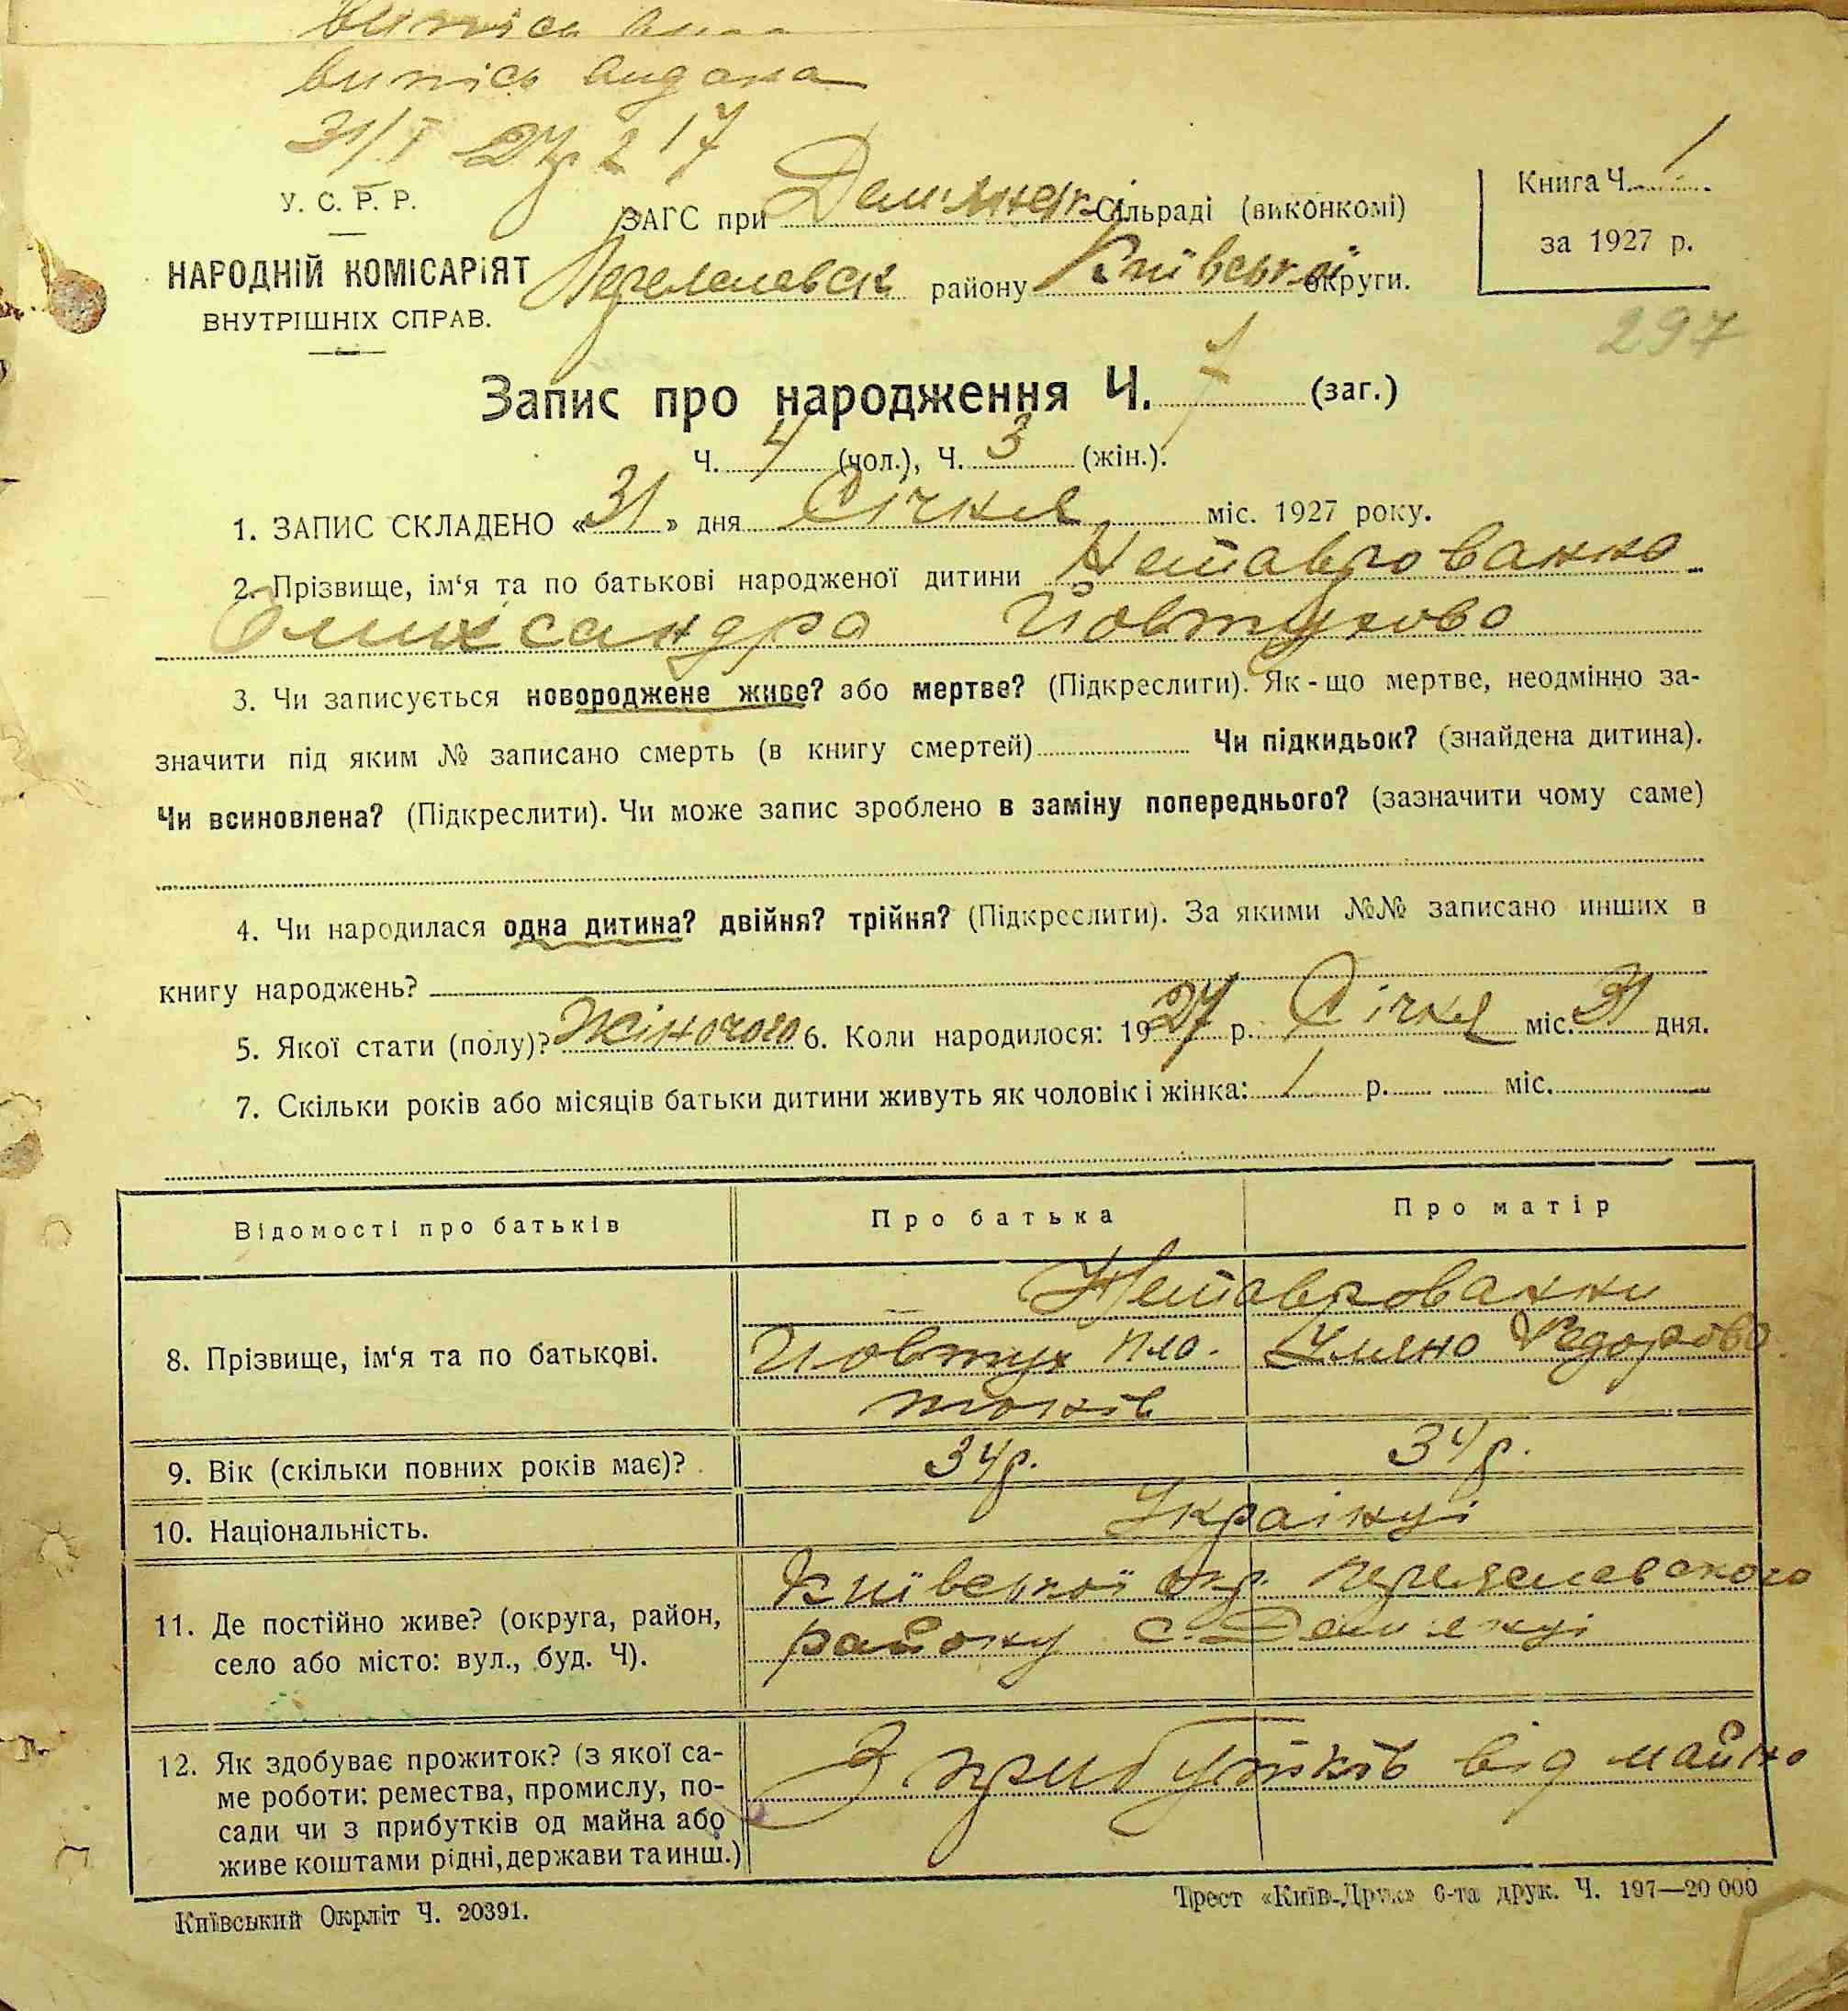 випись видана
31/I 27 р 2 17
У. С. Р. Р.
ЗАГС при Дем'янец. Сільраді (виконкомі)
Книга Ч. 1
за 1927 р.
НАРОДНІЙ КОМІСАРІЯТ
Переяславськ району Київської округи.
ВНУТРІШНІХ СПРАВ.
297
Запис про народження Ч. 7 (заг.)
Ч. 4 (чол.), Ч. 3 (жін.).
1. ЗАПИС СКЛАДЕНО «31» дня Січня міс. 1927 року.
2. Прізвище, ім‘я та по батькові народженої дитини Нетавровано
Оликсандра Йовтухово
3. Чи записується новороджене живе? або мертве? (Підкреслити). Як-що мертве, неодмінно за-
значити під яким № записано смерть (в книгу смертей) Чи підкидьок? (знайдена дитина).
Чи всиновлена? (Підкреслити). Чи може запис зроблено в заміну попереднього? (зазначити чому саме)
4. Чи народилася одна дитина? двійня? трійня? (Підкреслити). За якими №№ записано инших в
книгу народжень?
5. Якої стати (полу)? Жіночого 6. Коли народилося: 1927 р. Січня міс. 31 дня.
7. Скільки років або місяців батьки дитини живуть як чоловік і жінка: 1 р. міс.
Відомості про батьків Про батька Про матір
Нетавровани
8. Прізвище, ім‘я та по батькові. Йовтух Пла- Уляно Федорово
тонів
9. Вік (скільки повних років має)? 34р. 34р.
10. Національність. Українці
Київської окр. Переяславського
11. Де постійно живе? (округа, район,
району с. Дем'янці
село або місто: вул., буд. Ч).
12. Як здобуває прожиток? (з якої са-
З прибутків від майно
ме роботи: ремества, промислу, по-
сади чи з прибутків од майна або
живе коштами рідні, держави та инш.)
Київський Окрліт Ч. 20391.
Трест «Київ-Друк» 6-та друк. Ч. 197—20 000